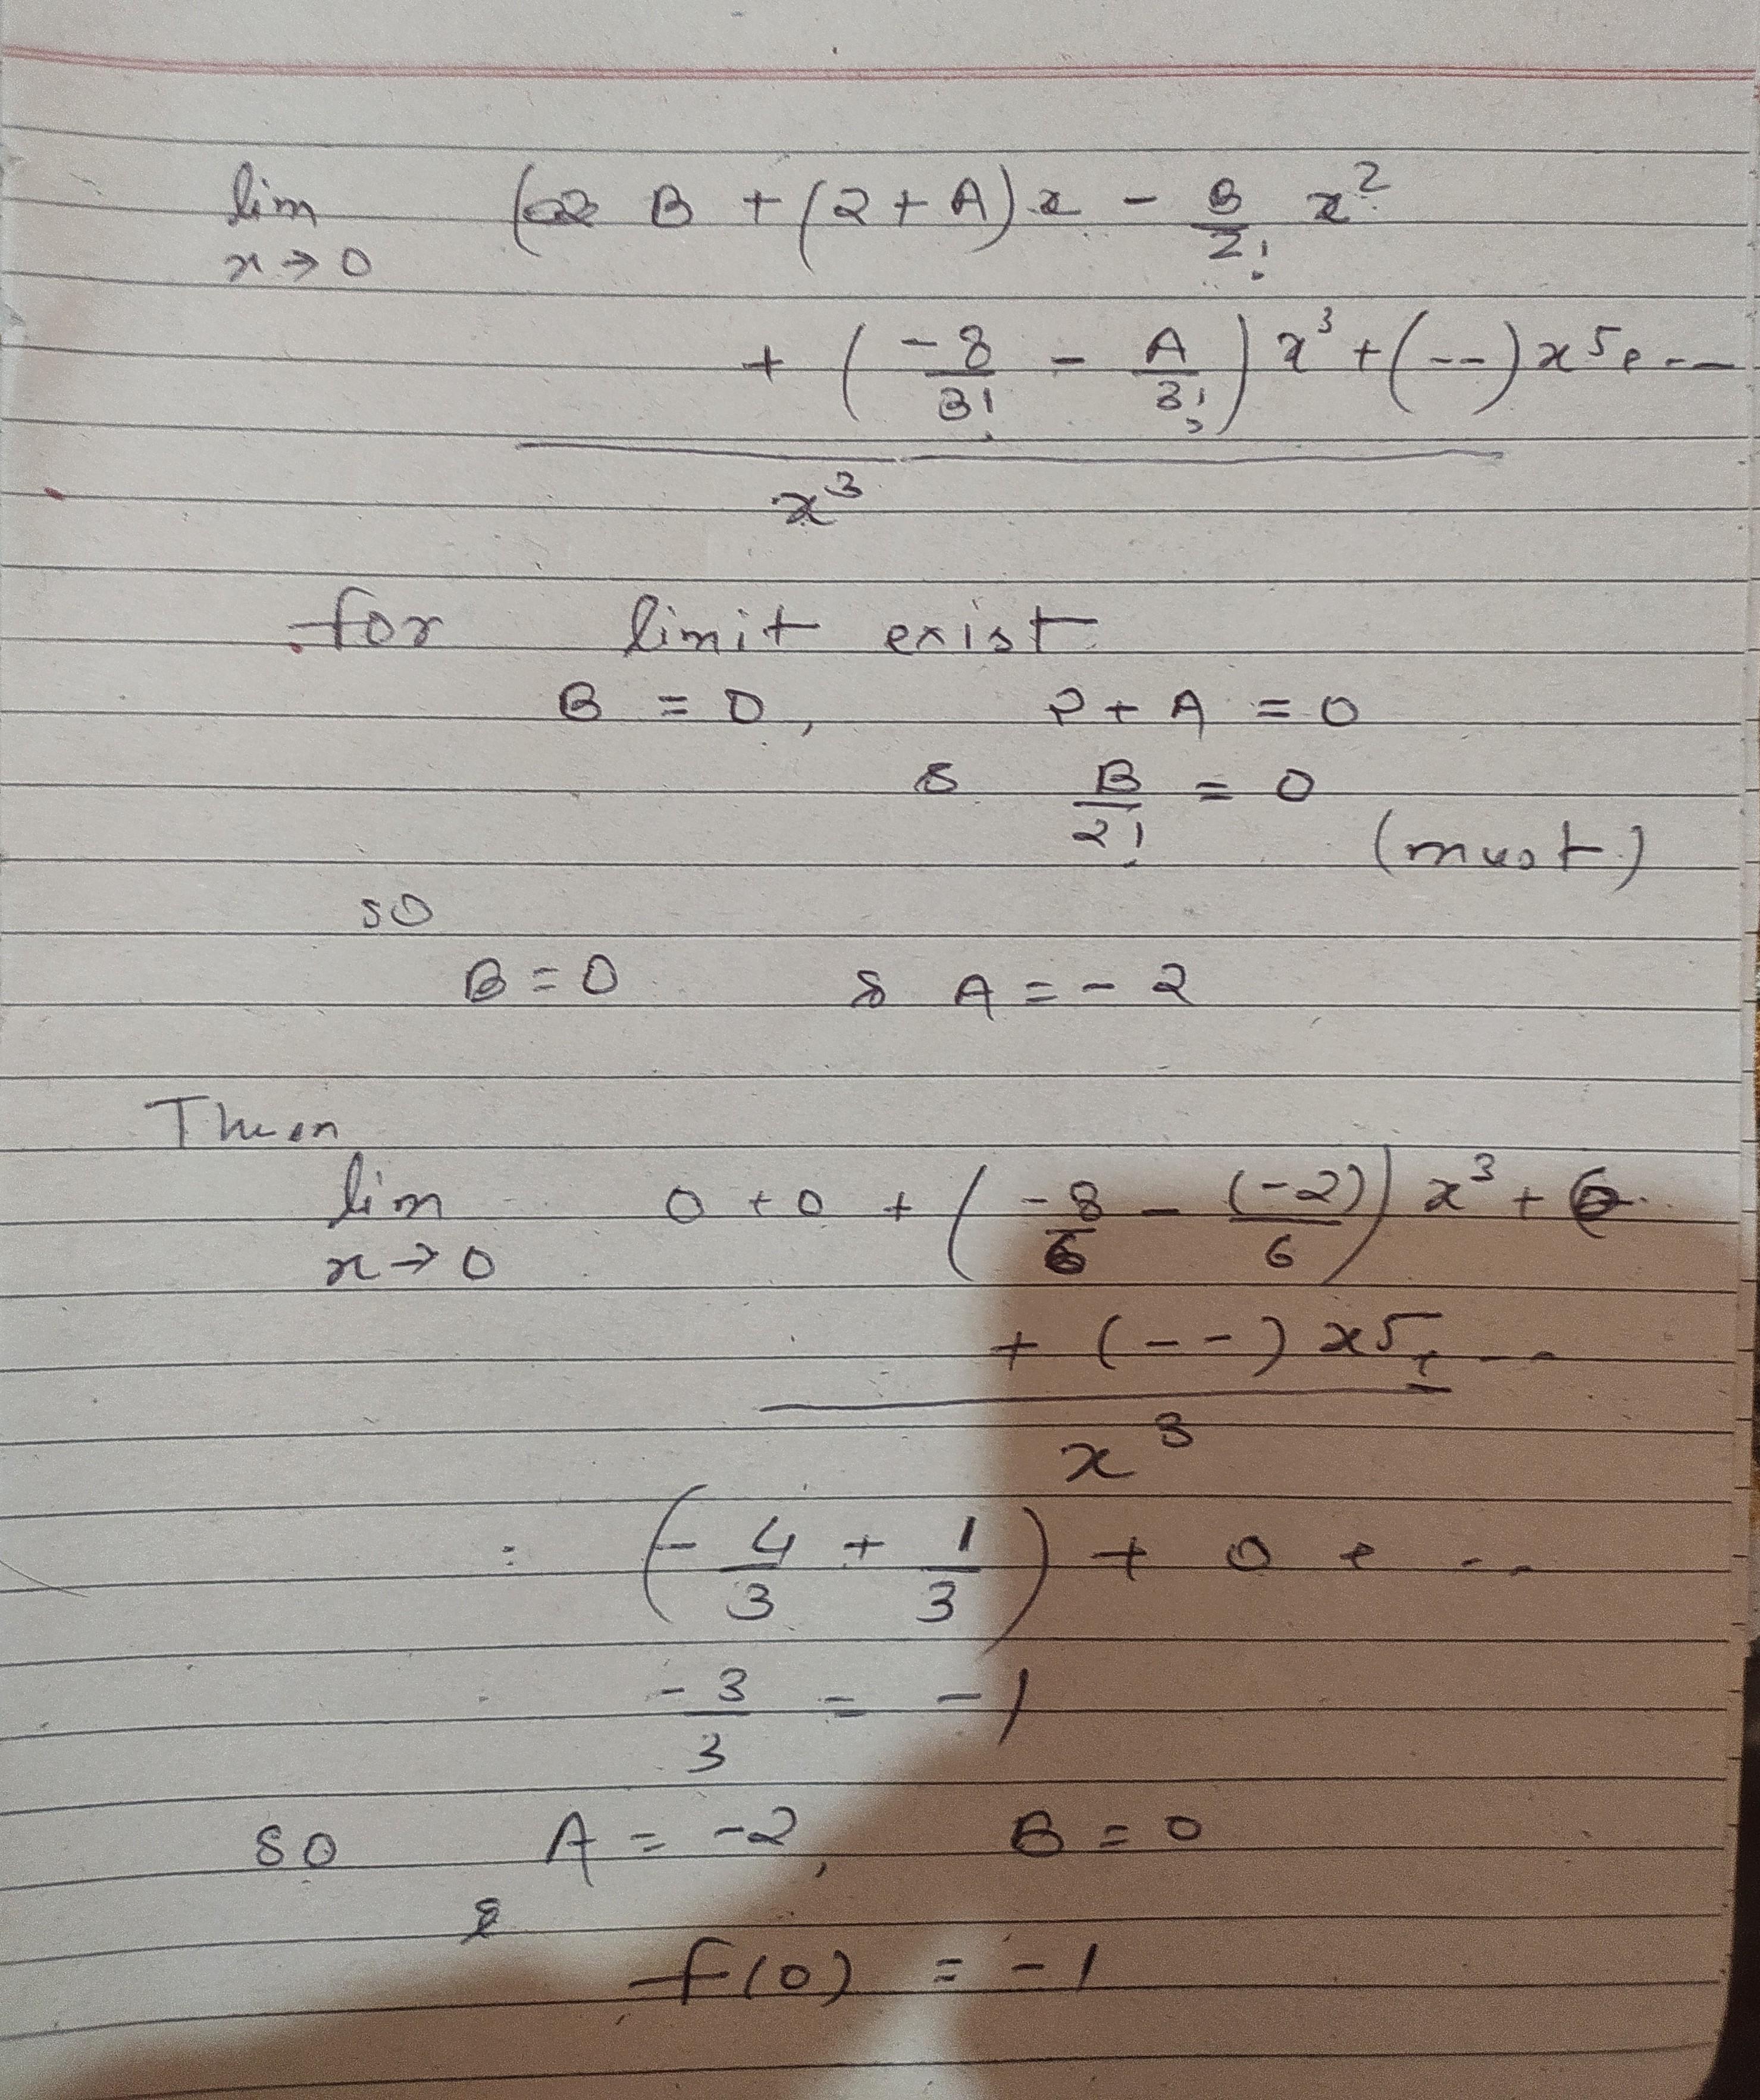 lim B + (2 + A) x - B/2! x²
x→0
+ (-8/3! - A/3!) x³ + (--) x⁵ + ---
x³
for limit exist
B = 0, 2 + A = 0
& B/2! = 0
(must)
so
B = 0 & A = - 2
Then
lim 0 + 0 + (-8/6 - (-2)/6) x³ +
x→0
+ (--) x⁵ + ---
x³
: (- 4/3 + 1/3) + 0 + ---
- 3/3 = - 1
so A = -2, B = 0
&
f(0) = - 1